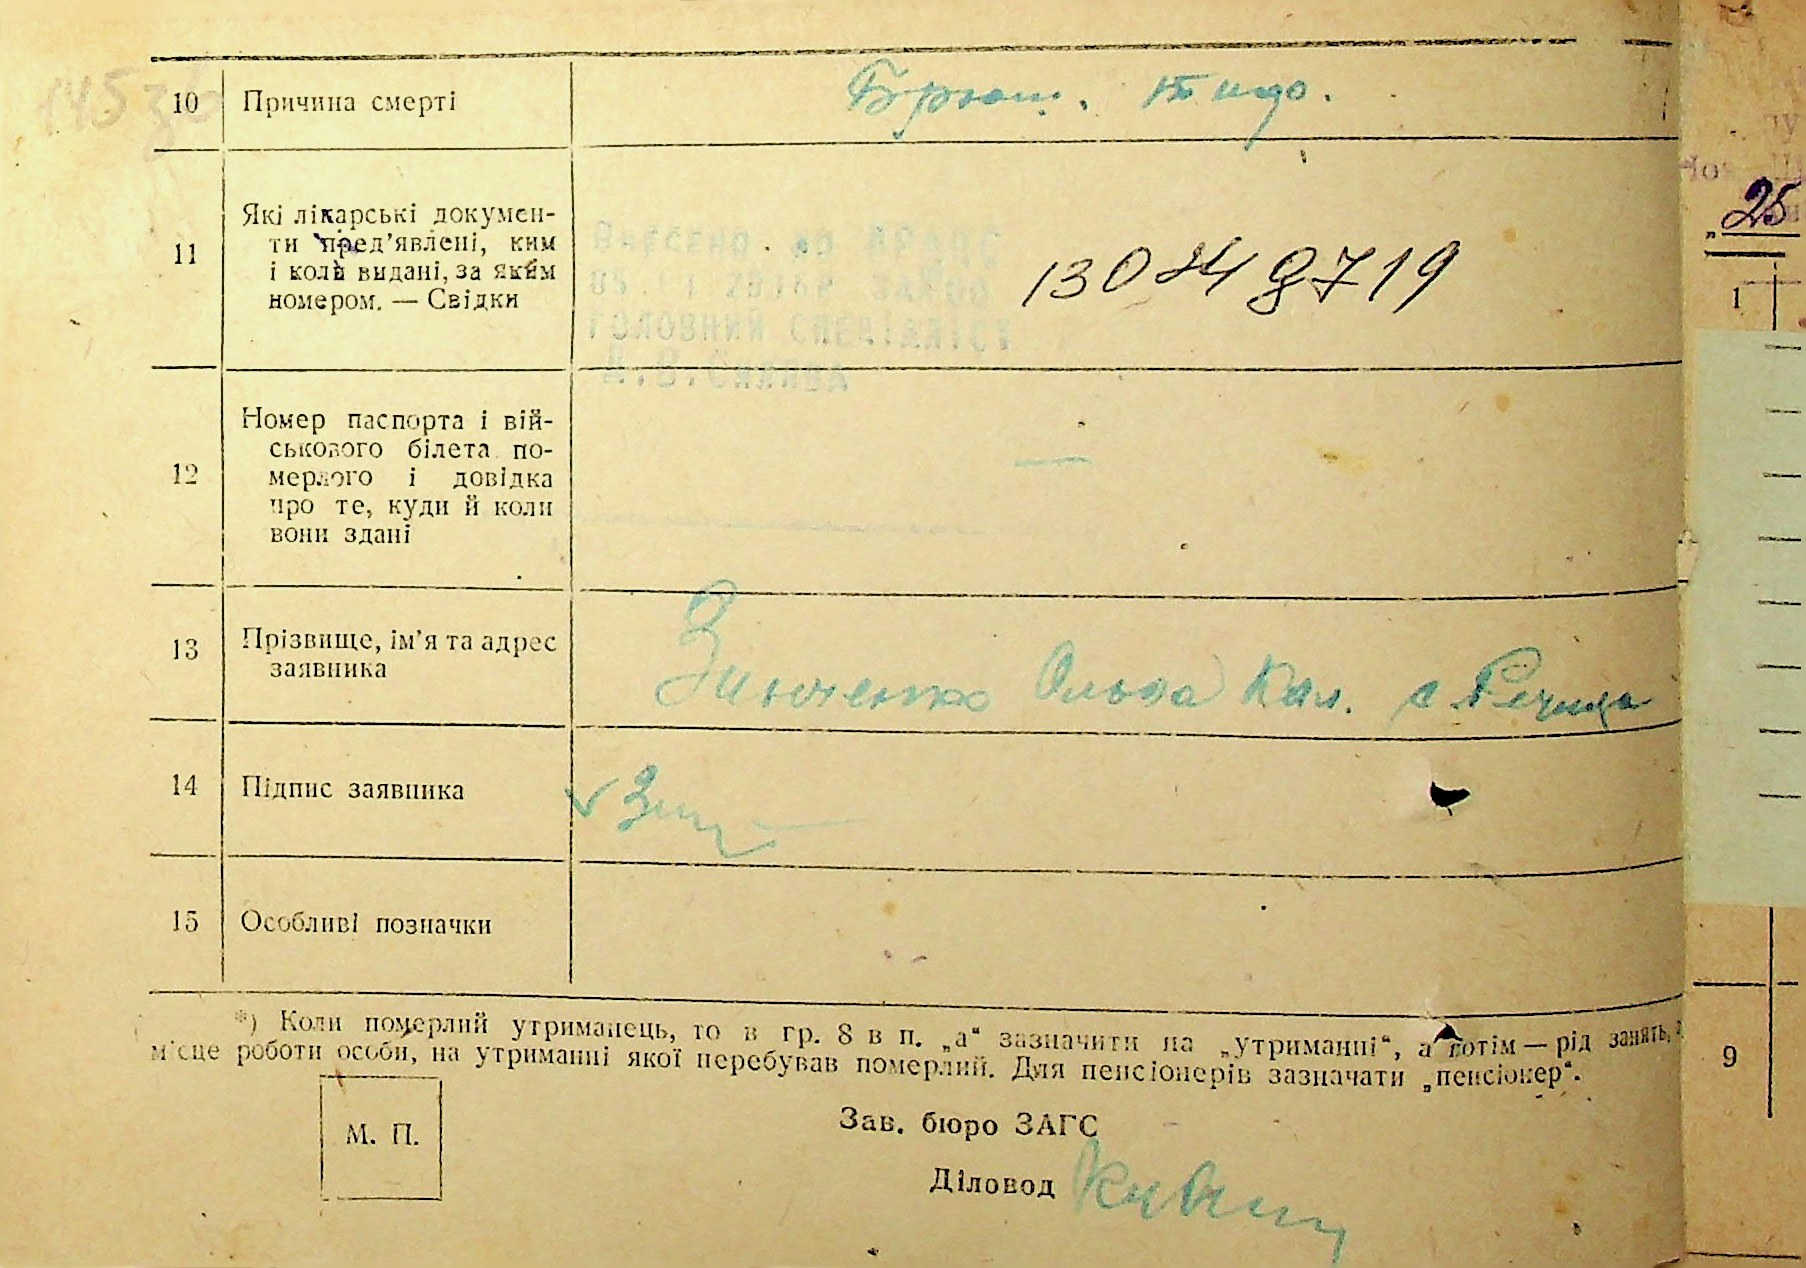 10 Причина смерті Брюш. тиф.
11 Які лікарські докумен-
ти пред’явлені, ким
і коли видані, за яким
номером. — Свідки
Внесено до ДРАЦС
ГОЛОВНИЙ СПЕЦІАЛІСТ
12 Номер паспорта і вій-
ськового білета по-
мерлого і довідка
про те, куди й коли
вони здані
—
13 Прізвище, ім’я та адрес
заявника
Зинченко Ольга Кал. с Речица
14 Підпис заявника
15 Особливі позначки
*) Коли померлий утриманець, то в гр. 8 в п. „а“ зазначити на „утриманні“, а потім — рід занять,
місце роботи особи, на утриманні якої перебував померлий. Для пенсіонерів зазначати „пенсіонер“.
М. П.
Зав. бюро ЗАГС
Діловод
25
1
9